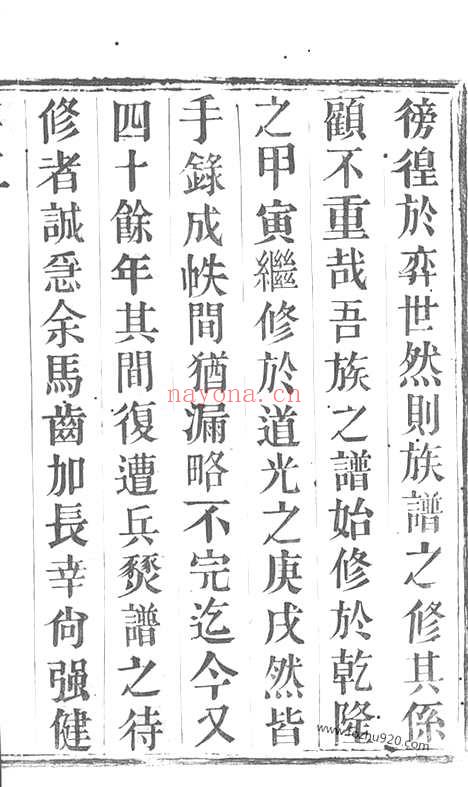 徬徨於弈世然則族譜之修其係
顧不重哉吾族之譜始修於乾隆
之甲寅繼修於道光之庚戌然皆
手錄成帙間猶漏略不完迄今又
四十餘年其間復遭兵燹譜之待
修者誠急余馬齒加長幸尙强健
nayona.cn
www.fozhu920.com